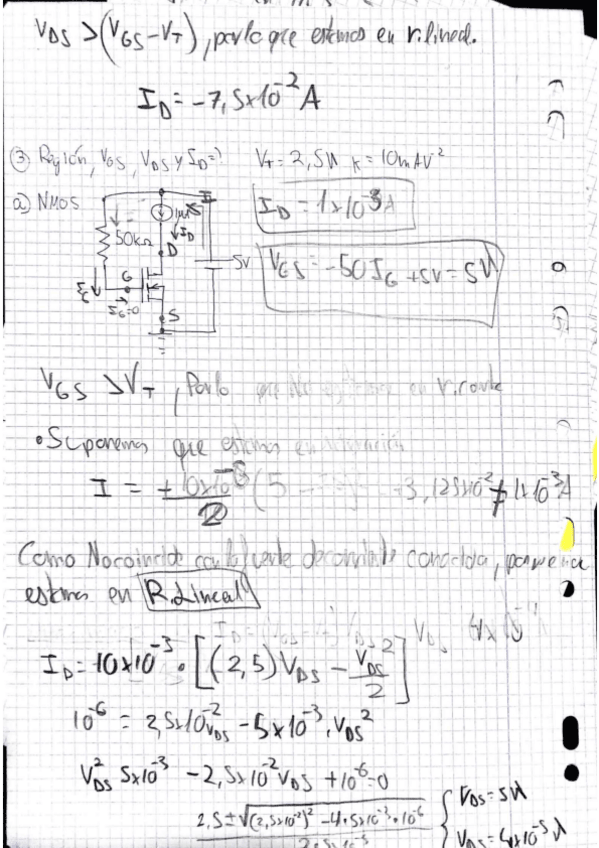 V_DS > (V_GS - V_T), por lo que estamos en r. lineal.
I_D = -7,5x10^-2 A
③ Región, V_GS, V_DS y I_D=? V_T = 2,5V K = 10mAV^-2
a) NMOS
I_D = 1x10^-3 A
50kΩ
I_D
D
5V
V_GS = -50I_G + 5V = 5V
G
I_G=0
S
V_GS > V_T, Por lo que No estamos en r. corte
• Suponemos que estamos en saturación
I = + 10x10^-3 / 2 (5 3,125x10^-2 ≠ 1x10^-3 A
Como No coincide con la fuente de corriente conocida,
estamos en R. Lineal
I_D = 10x10^-3 · [(2,5)V_DS - V_DS^2 / 2]
10^-6 = 2,5x10^-2 V_DS - 5x10^-3 · V_DS^2
V_DS^2 5x10^-3 - 2,5x10^-2 V_DS + 10^-6 = 0
2,5 ± √(2,5x10^-2)^2 - 4·5x10^-3·10^-6
V_DS = 5V
V_DS = 4x10^-5 V